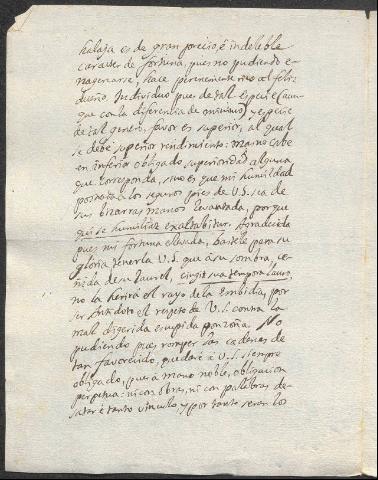 halaja es de gran precio, è indeleble
caracter de fortuna, pues no pudiendo e-
nagenarse, hace perenemente rico al feliz
dueño. Individuo pues de tal especie (aun-
que con la diferencia de minimo) y especie
de tal genero, favor es superior, al qual
se debe superior rendimiento; mas no cabe
en inferior obligado superioridad alguna
que corresponda, sino es que mi humildad
postrada a los seguros pies de V.S. sea de
sus bizarras manos levantada, porque
qui se humiliat exaltabitur. Agradecida
pues mi fortuna elevada, bastele para su
gloria tener la V.S. que à su sombra, ce-
ñida de su laurel, cingit sua tempora lauro,
no la herirà el rayo de la Embidia, por
ser Antidoto el respeto de V.S. contra la
mal digerida escupida ponzoña. No
pudiendo pues romper las cadenas de
tan favorecido, quedarè à V.S. siempre
obligado, que à mano noble, obligacion
perpetua: ni con obras, ni con palabras de-
satarè tanto vinculo, y por tanto seran los